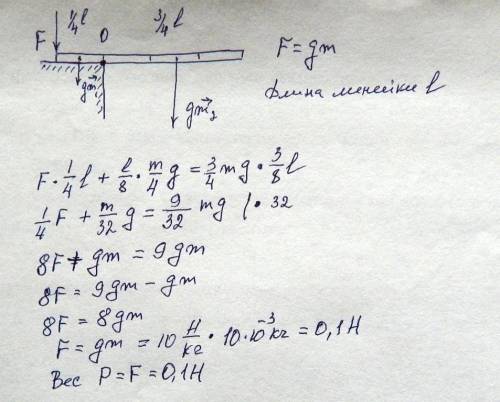 1/4 l 3/4 l
F O
gm⃗₁ gm⃗₂
F = gm
Длина линейки l
F · 1/4 l + l/8 · m/4 g = 3/4 mg · 3/8 l
1/4 F + m/32 g = 9/32 mg | · 32
8F + gm = 9gm
8F = 9gm - gm
8F = 8gm
F = gm = 10 Н/кг · 10·10⁻³кг = 0,1Н
Вес P = F = 0,1Н